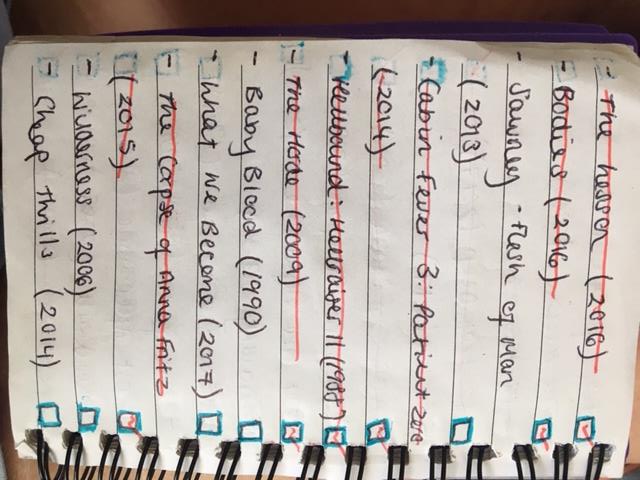 - The Lesson (2016)
- Bodies (2016)
- Sawney - Flesh of Man
(2013)
- Cabin Fever 3: Patient zero
(2014)
- Hellbound: Hellraiser II (1988)
- The Horde (2009)
- Baby Blood (1990)
- What We Become (2017)
- The Corpse of Anna Fritz
(2015)
- Wilderness (2006)
- Cheap Thrills (2014)